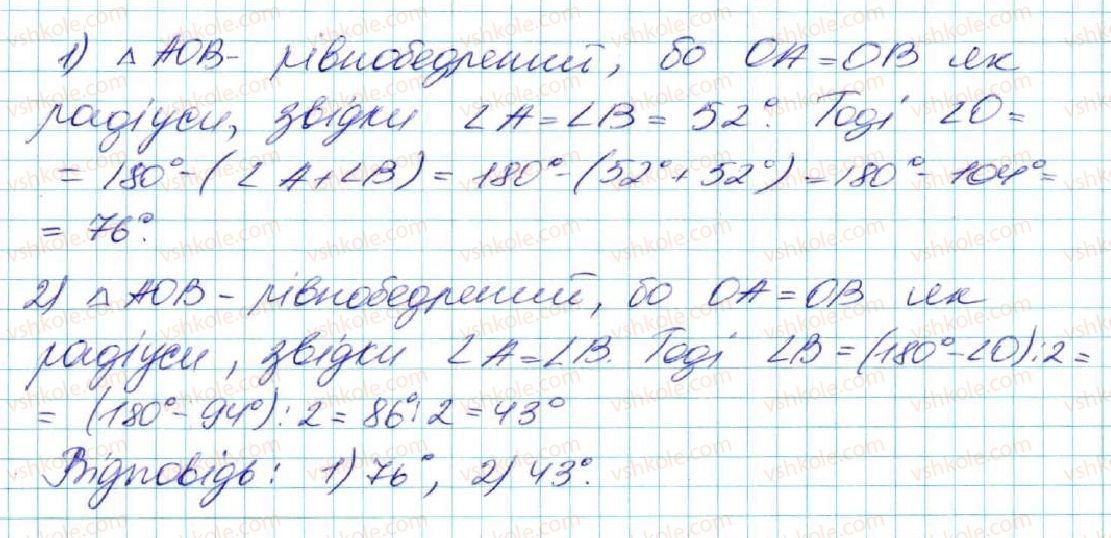 1) △ AOB - рівнобедрений, бо OA = OB як
радіуси, звідки ∠A = ∠B = 52°. Тоді ∠O =
= 180° - (∠A + ∠B) = 180° - (52° + 52°) = 180° - 104° =
= 76°.
2) △ AOB - рівнобедрений, бо OA = OB як
радіуси, звідки ∠A = ∠B. Тоді ∠B = (180° - ∠O) : 2 =
= (180° - 94°) : 2 = 86° : 2 = 43°
Відповідь: 1) 76°, 2) 43°.